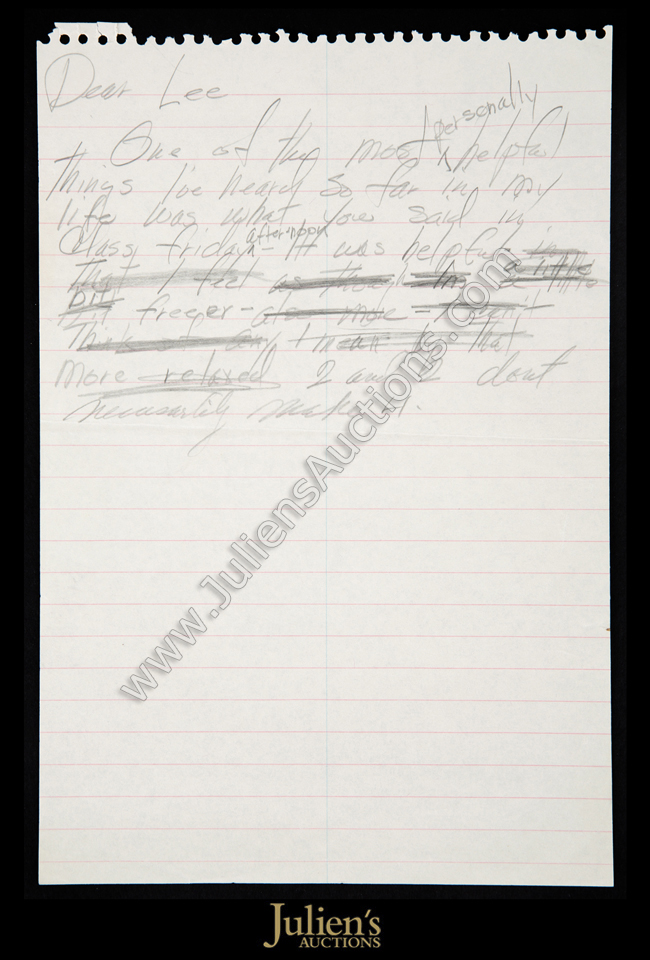 Dear Lee
One of the most personally helpful
things I've heard so far in my
life was what you said in
Class friday afternoon - It was helpful in
that I feel as though a little
bit freeer - also more -
Think of + mean by that
more relaxed 2 and 2 dont
necessarily make 4.
www.JuliensAuctions.com
Julien's
AUCTIONS